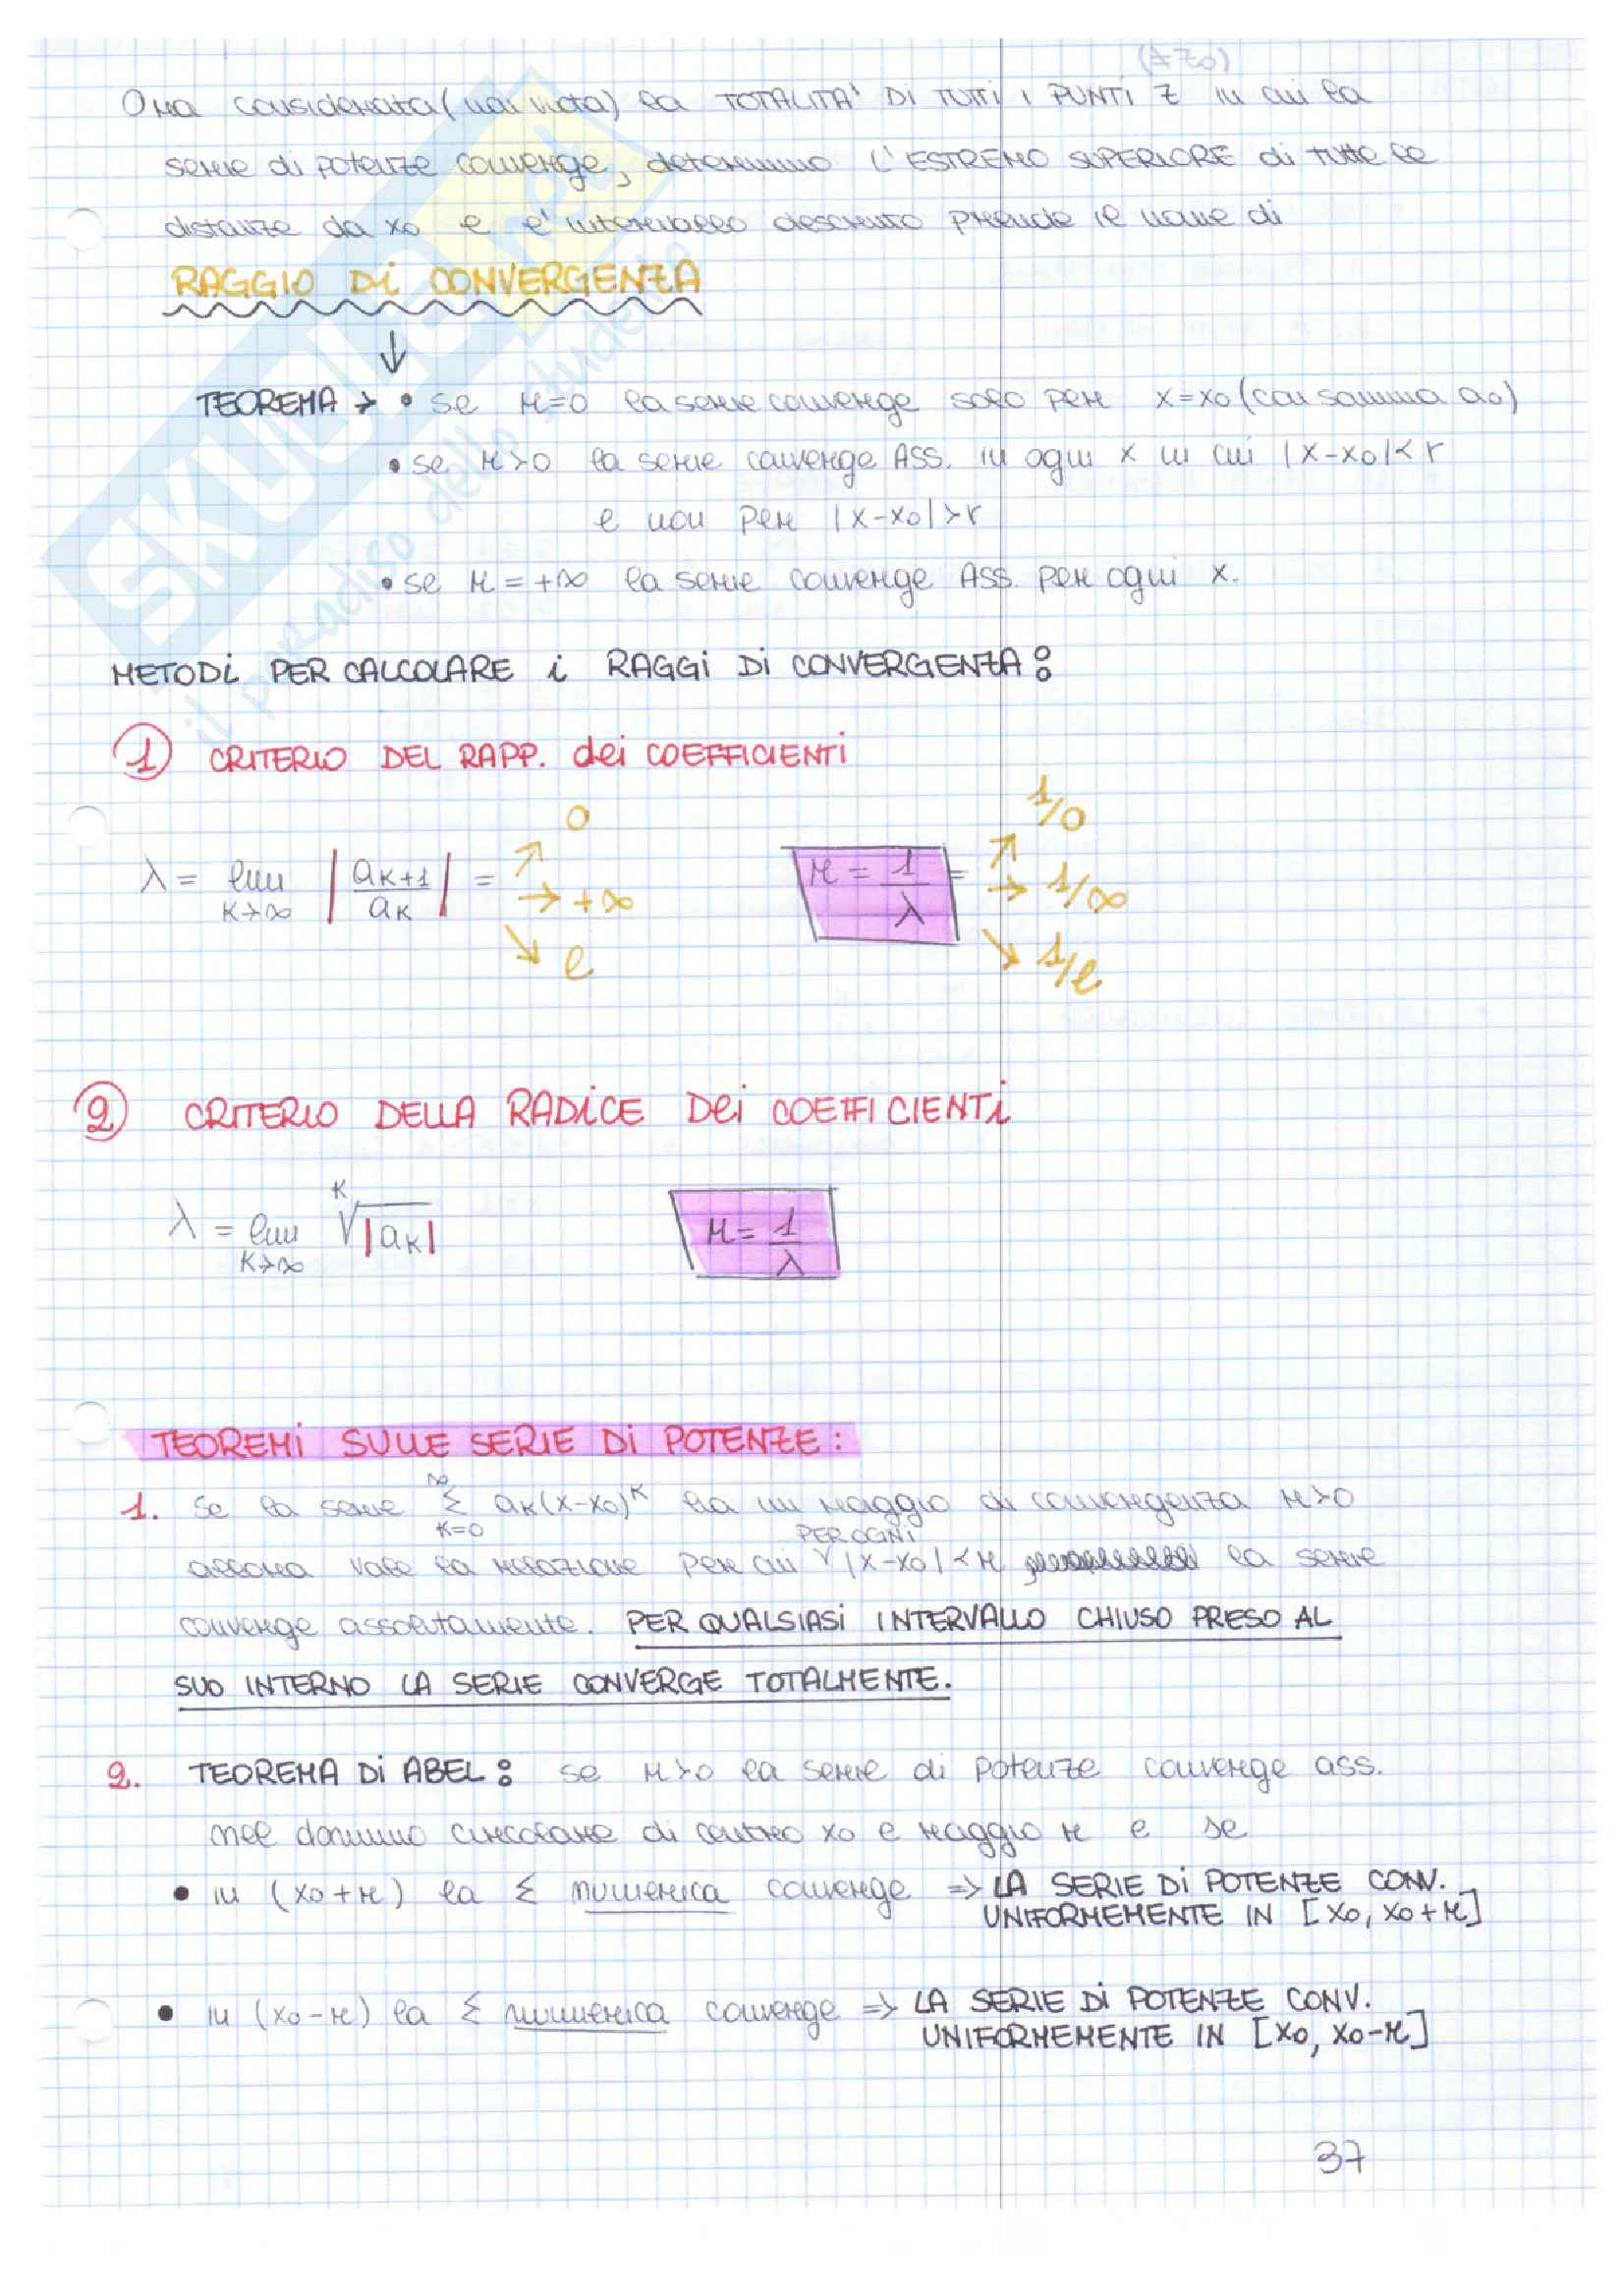 (≠z0)
Ora considerata (non vuota) la TOTALITA' DI TUTTI I PUNTI z in cui la
serie di potenze converge, determino L'ESTREMO SUPERIORE di tutte le
distanze da x0 e l'intervallo descritto prende il nome di
RAGGIO Di CONVERGENZA
↓
TEOREMA → • se r=0 la serie converge solo per x=x0 (con somma a0)
• se r>0 la serie converge ASS. in ogni x in cui |x-x0|<r
e non per |x-x0|>r
• se r=+∞ la serie converge ASS. per ogni x.
METODi PER CALCOLARE i RAGGi Di CONVERGENZA:
1 CRITERIO DEL RAPP. dei COEFFICIENTi
λ = lim k→∞ |ak+1/ak| = ↗ 0 → +∞ ↘ l r = 1/λ = ↗ 1/0 → 1/∞ ↘ 1/l
2 CRITERIO DELLA RADiCE Dei COEFFICIENTi
λ = lim k→∞ k√|ak| r = 1/λ
TEOREMi SULLE SERIE Di POTENZE:
1. Se la serie ∞ Σ k=0 ak(x-x0)^k ha un raggio di convergenza r>0
allora vale la relazione per cui PER OGNI |x-x0|<r la serie
converge assolutamente. PER QUALSIASi INTERVALLO CHIUSO PRESO AL
SUO INTERNO LA SERIE CONVERGE TOTALMENTE.
2. TEOREMA Di ABEL: se r>0 la serie di potenze converge ass.
nel dominio circolare di centro x0 e raggio r e se
• in (x0+r) la Σ numerica converge => LA SERIE Di POTENZE CONV.
UNIFORMEMENTE IN [x0, x0+r]
• in (x0-r) la Σ numerica converge => LA SERIE Di POTENZE CONV.
UNIFORMEMENTE IN [x0, x0-r]
37
SKUOLA.net
il paradiso dello studente